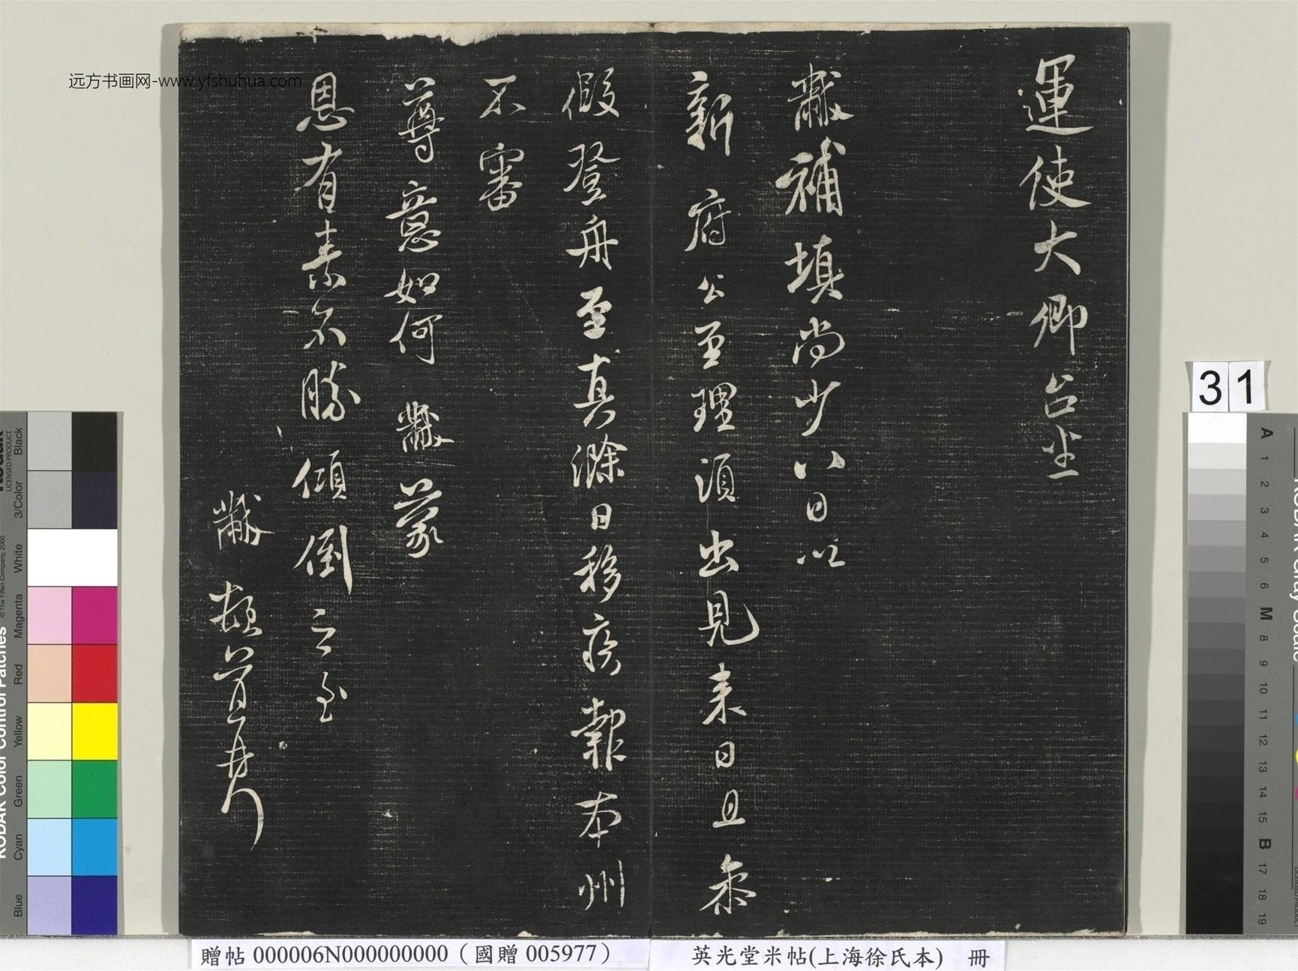 運使大卿台坐
黻補填尚少八日以
新府公至理須出見来日且參
假登舟至真滁日移疾報本州
不審
尊意如何黻蒙
恩有素不勝傾倒之至
黻頓首再
远方书画网-www.yfshuhua.com
31
贈帖 000006N000000000（國贈 005977）
英光堂米帖(上海徐氏本) 冊
KODAK Color Control Patches
LICENSED PRODUCT
Blue Cyan Green Yellow Red Magenta White 3/Color Black
A 1 2 3 4 5 6 M 8 9 10 11 12 13 14 15 B 17 18 19